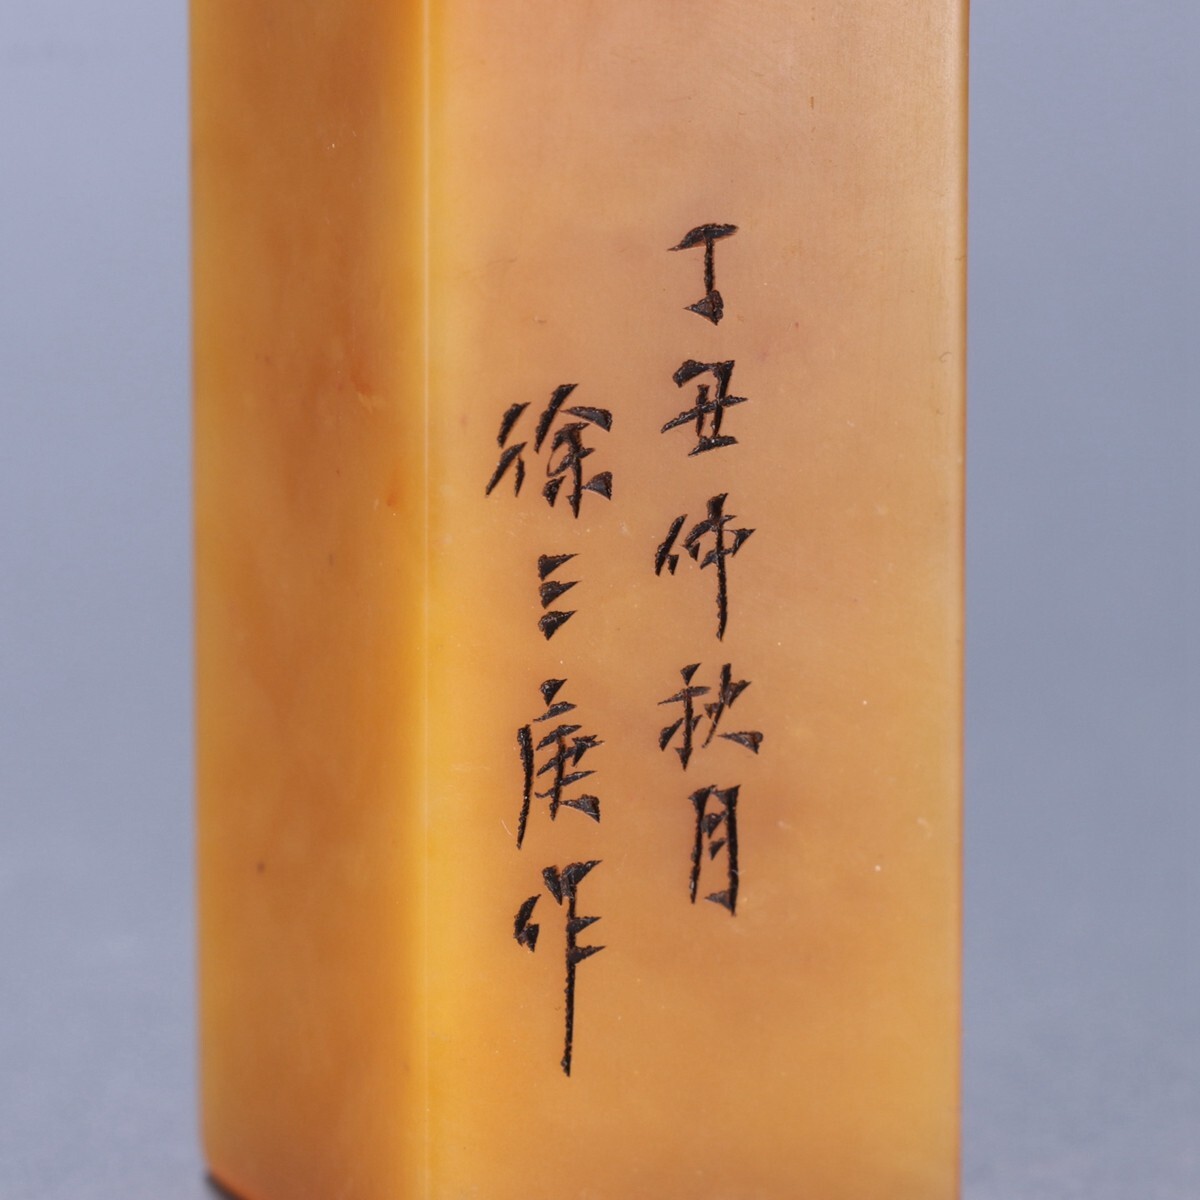 丁丑仲秋月
徐三庚作